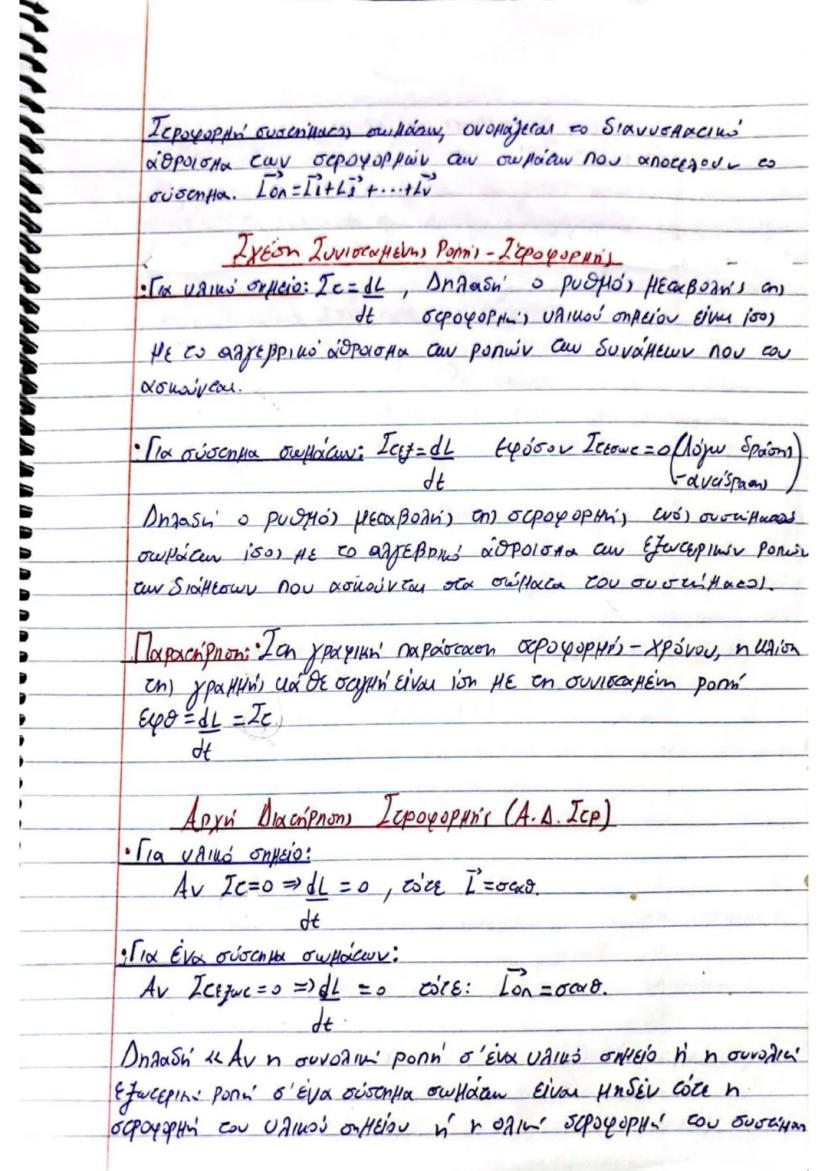 Στροφορμή συστήματος σωμάτων, ονομάζεται το διανυσματικό
άθροισμα των στροφορμών των σωμάτων που αποτελούν το
σύστημα. L⃗ολ = L⃗1 + L⃗2 + ... + L⃗ν
Σχέση Συνισταμένης Ροπής - Στροφορμής
• Για υλικό σημείο: Στ = dL/dt , Δηλαδή ο ρυθμός μεταβολής της
στροφορμής υλικού σημείου είναι ίσος
με το αλγεβρικό άθροισμα των ροπών των δυνάμεων που του
ασκούνται.
• Για σύστημα σωμάτων: Στεξ = dL/dt εφόσον Στεσωτ = 0 (λόγω δράσης
- αντίδρασης)
Δηλαδή ο ρυθμός μεταβολής της στροφορμής ενός συστήματος
σωμάτων ίσος με το αλγεβρικό άθροισμα των εξωτερικών ροπών
των διάμεσων που ασκούνται στα σώματα του συστήματος.
Παρατήρηση: • Στη γραφική παράσταση στροφορμής - χρόνου, η κλίση
της γραμμής κάθε στιγμή είναι ίση με τη συνισταμένη ροπή
εφθ = dL/dt = Στ
Αρχή Διατήρησης Στροφορμής (Α.Δ.Στρ)
• Για υλικό σημείο:
Αν Στ = 0 ⇒ dL/dt = 0 , τότε L⃗ = σταθ.
• Για ένα σύστημα σωμάτων:
Αν Στεξωτ = 0 ⇒ dL/dt = 0 τότε: L⃗ολ = σταθ.
Δηλαδή « Αν η συνολική ροπή σ' ένα υλικό σημείο ή η συνολική
εξωτερική ροπή σ' ένα σύστημα σωμάτων είναι μηδέν τότε η
στροφορμή του υλικού σημείου ή η ολική στροφορμή του συστήμα